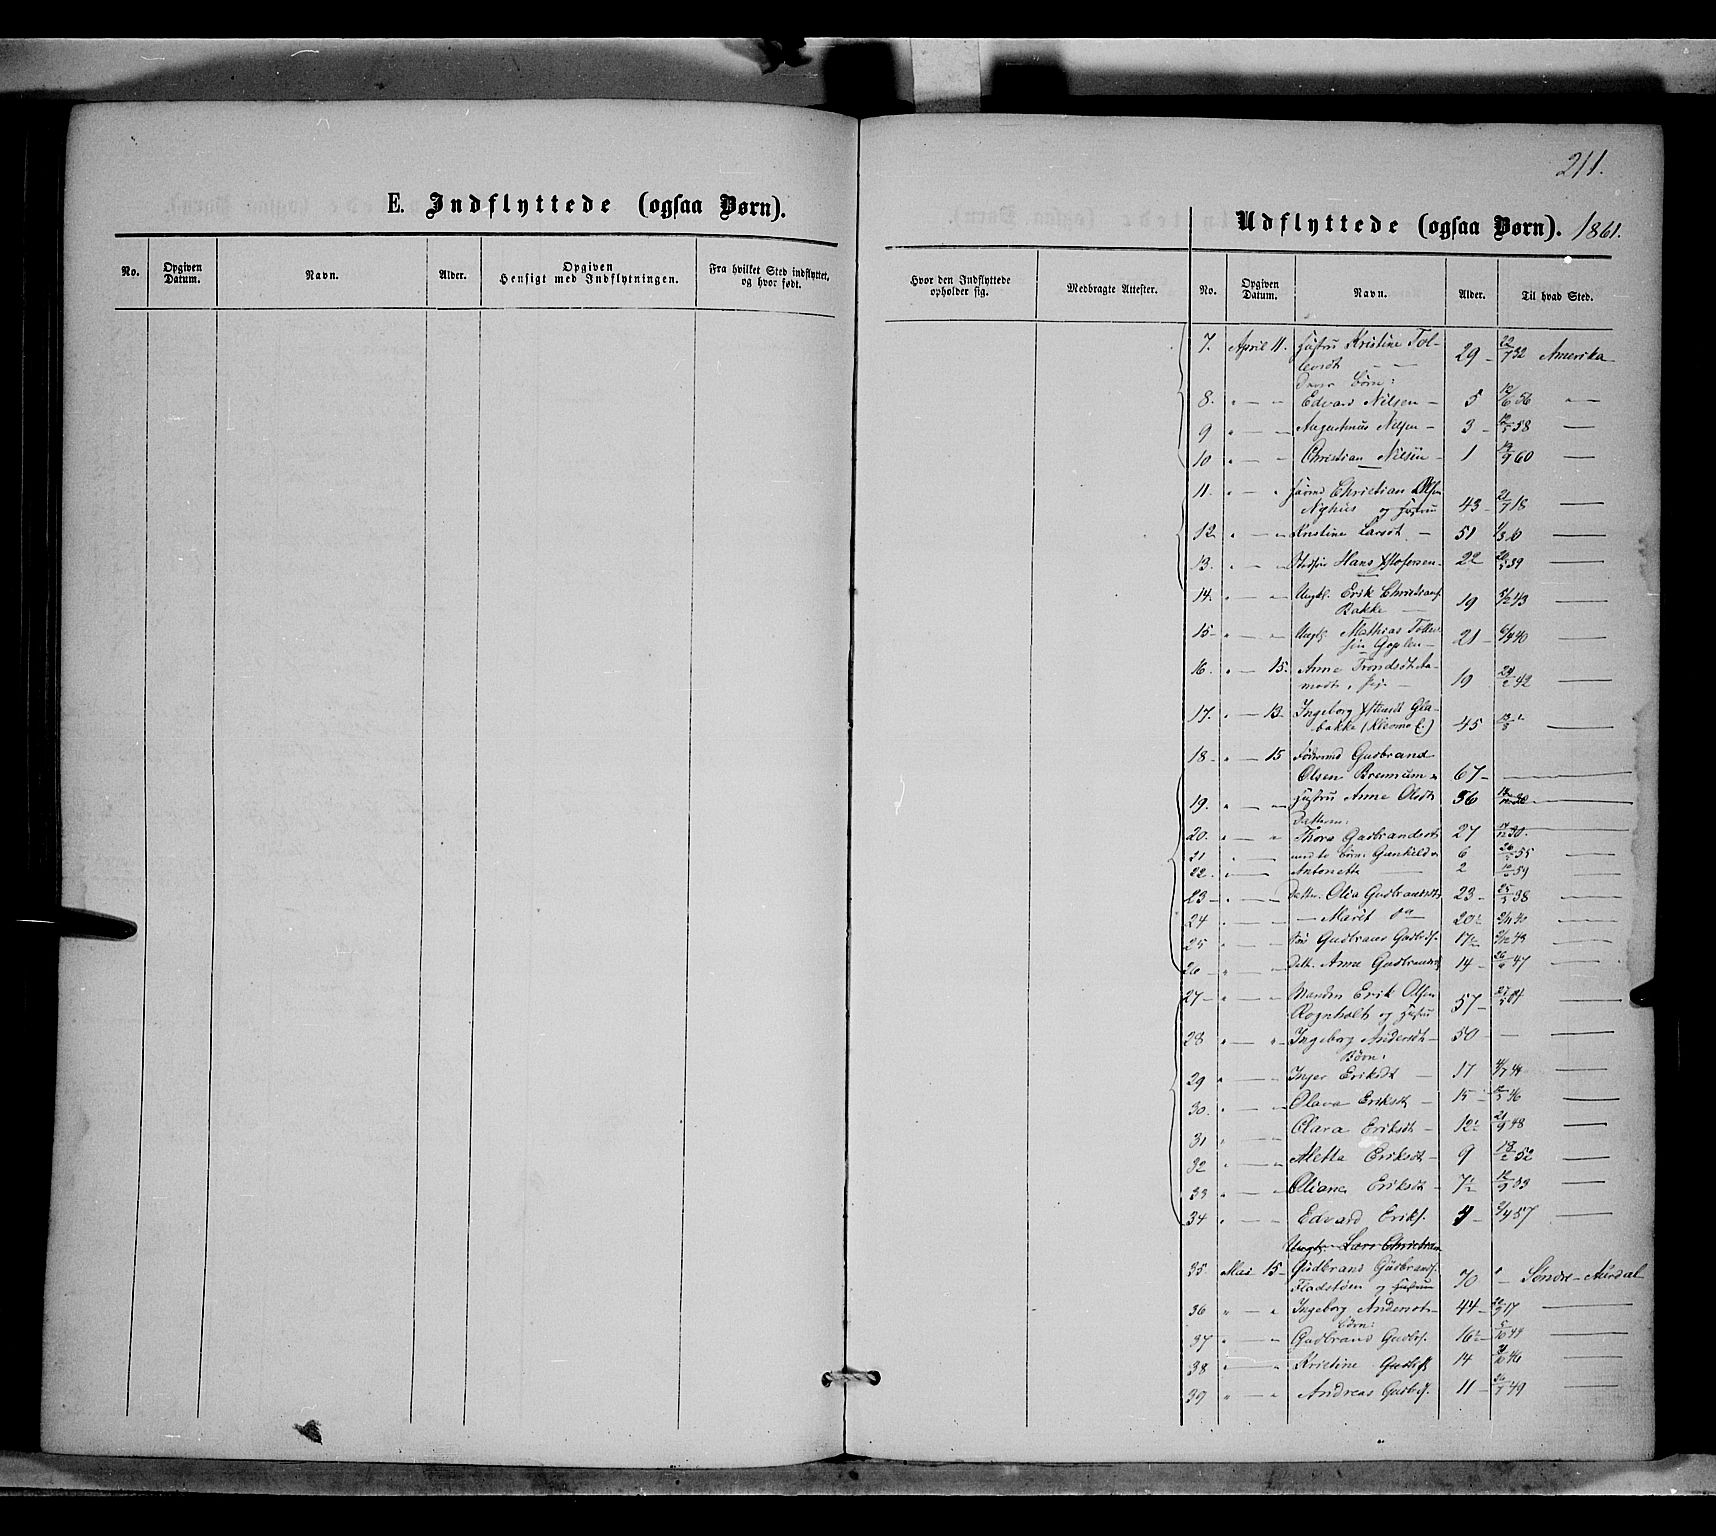 211.
E. Indflyttede (ogsaa Børn).
No. Opgiven Datum. Navn. Alder. Opgiven Hensigt med Indflytningen. Fra hvilket Sted indflyttet, og hvor født.
Hvor den Indflyttede opholder sig. Medbragte Attester.
Udflyttede (ogsaa Børn). 1861.
No. Opgiven Datum. Navn. Alder. Til hvad Sted.
7. April 11. Hustru Kristine Tol-
levsdt 29 - 22/7 32 Amerika
Børn:
8. " — " Edvard Nilsen - 5 56 "
9 " — " Augustinus Nilsen - 3 - 58 —
10 " — " Christian Nilsen - 1 60 —
11. " — " Christian Olsen
Nyhus og Hustru 43 - 18 —
12 " — " Kristine Larsdt. - 51 10 —
13. " — " Hans - 22 39 —
14. " — " Ungk. Erik Christians.
Bakke — 19 43 —
15 - " — " Ungk. Mathias
Goplen - 21 - 40 —
16. " — 15. Anne Trondsdt Aa-
modt, - 19 42 —
17. " — 13 - Ingeborg
bakke 45 —
18 - " — 15 Gudbrand
Olsen Brennum 67 - —
19. " — " Hustru Anne Olsdt 56 —
Døttre:
20. " — " Thora Gudbrandsdt 27 30. —
21 " — Børn: Gunhild 6 55 —
22. " — Antonetta 2 59 —
23 - " — Olia Gudbrandsdt 23 - 25/ 38 —
24 " — — Marit do — 20 40 —
25 " — Gudbrand Gudbrs. 17 43 —
26 - " — " Anne Gudbrandsdt 14 - 26/ 47 —
27 - " — " Manden Erik Olsen
Rognholt og Hustru 57 - 04 —
28 " — " Ingeborg Andersdt - 50 - — —
Børn:
29 " — " Inger Eriksdt — 17 44 —
30. " — " Olava Eriksdt - 15 - 46 —
31 " — " Clara Eriksdt - 12 21/9 48 —
32 " — " Aletta Eriksdt - 9 18/2 52 —
33 " — " Oliana Eriksdt - 7 53 —
34 " — " Edvard Eriks. 4 - 57 —
Ungk. Lars Christian
35. Mai 15 - Gudbrand Gudbrands.
og Hustru 70 " - Søndre-Aurdal
36 " — " Ingeborg Andersdt - 44 - 17 —
Børn:
37 " — " Gudbrand Gudbrs. 16 5/10 44 —
38 " — " Kristine 14 46 —
39 " — " Andreas Gudbrs. 11 - 49 —